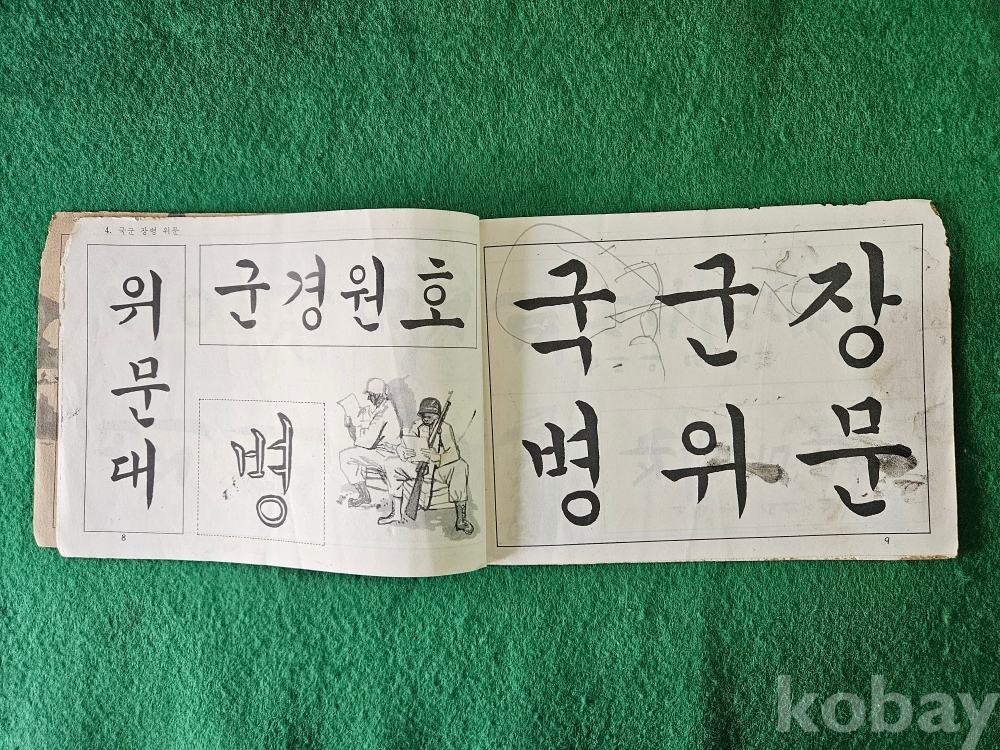 4. 국군 장병 위문
위
문
대
군경원호
병
8
국군장
병위문
9
kobay